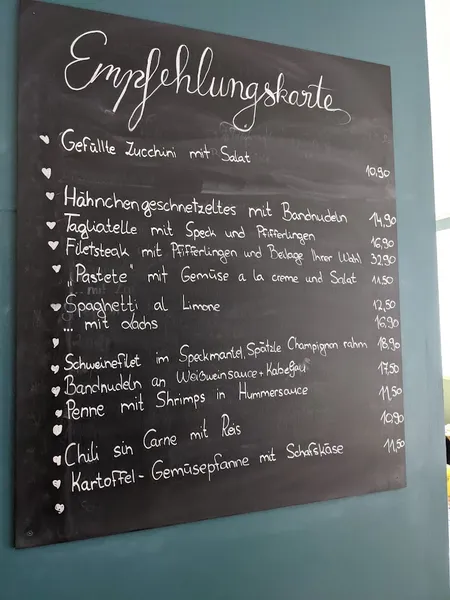 Empfehlungskarte
Gefüllte Zucchini mit Salat 10,90
Hähnchengeschnetzeltes mit Bandnudeln 14,90
Tagliatelle mit Speck und Pfifferlingen 16,90
Filetsteak mit Pfifferlingen und Beilage Ihrer Wahl 32,90
„Pastete" mit Gemüse a la creme und Salat 11,50
Spaghetti al Limone 12,50
... mit Lachs 16,90
Schweinefilet im Speckmantel, Spätzle Champignon rahm 18,90
Bandnudeln an Weißweinsauce + Kabeljau 17,50
Penne mit Shrimps in Hummersauce 11,50
Chili sin Carne mit Reis 10,90
Kartoffel- Gemüsepfanne mit Schafskäse 11,50